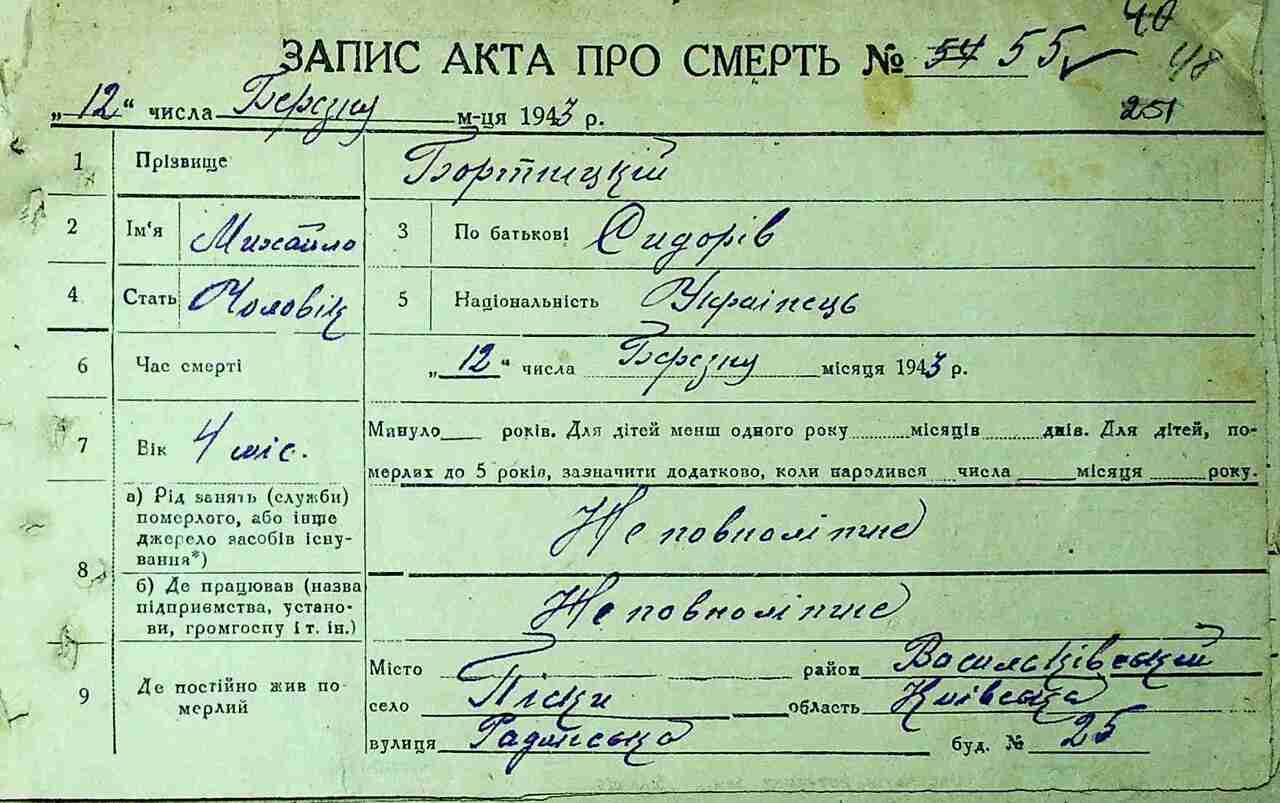 40
ЗАПИС АКТА ПРО СМЕРТЬ № 54 55 48
„12“ числа Березня м-ця 1943 р. 251
1 Прізвище Бортницкій
2 Ім'я Михайло 3 По батькові Сидорів
4 Стать Чоловік 5 Національність Українець
6 Час смерті „12“ числа Березня місяця 1943 р.
7 Вік 4 міс. Минуло ___ років. Для дітей менш одного року ........місяців........днів. Для дітей, по-
мерлих до 5 років, зазначити додатково, коли народився ___числа ___місяця ___року.
8 а) Рід занять (служби)
померлого, або інше
джерело засобів існу-
вання*) Не повнолітнє
б) Де працював (назва
підприємства, устано-
ви, громгоспу і т. ін.) Не повнолітнє
9 Де постійно жив по-
мерлий
Місто район Васильківській
село Піски область Київська
вулиця Радянська буд. № 25